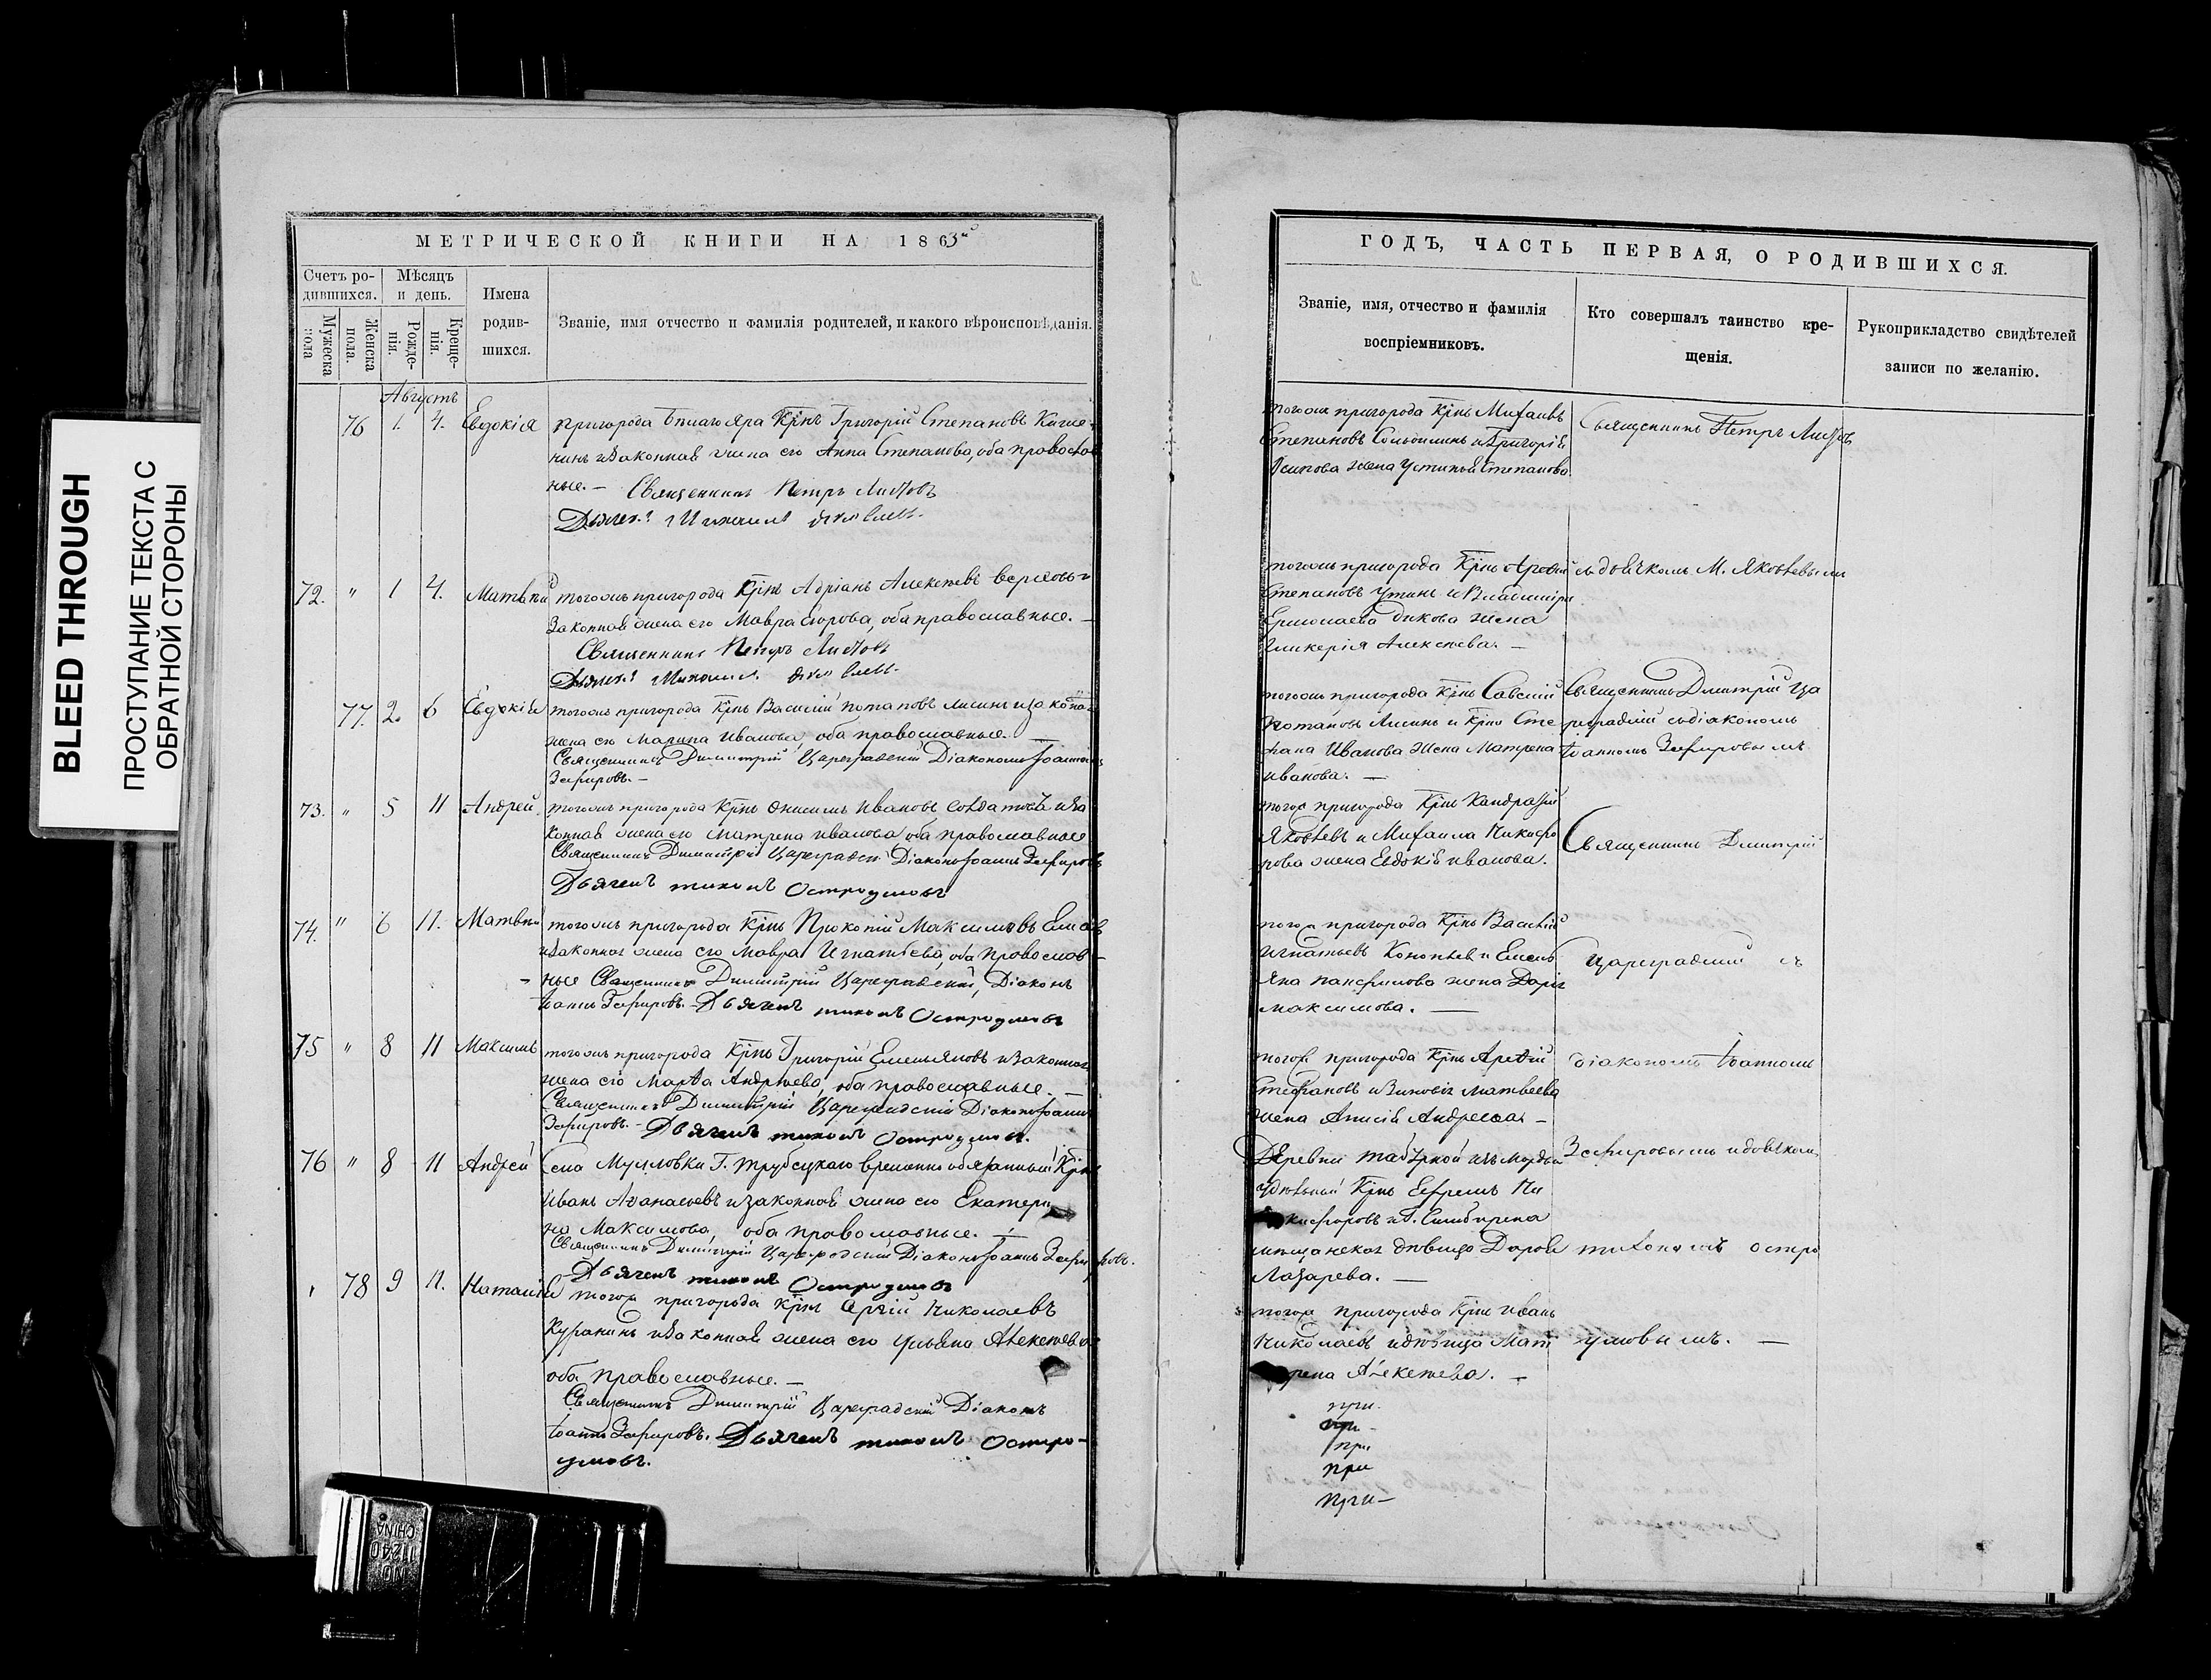 BLEED THROUGH
ПРОСТУПАНИЕ ТЕКСТА С
ОБРАТНОЙ СТОРОНЫ
МЕТРИЧЕСКОЙ КНИГИ НА 1863й
Счетъ ро-
дившихся.
Мужеска
пола
Женска
пола.
Мѣсяцъ
и день.
Рожде-
нія.
Креще-
нія.
Имена
родив-
шихся.
Званіе, имя отчество и фамилія родителей, и какого вѣроисповѣданія.
Августъ
76 1. 4. Евдокія
пригорода Крнъ Григорій Степановъ
нинъ изаконная жена его Анна Степанова, оба православ
ные. – Священникъ Петръ
Михаилъ
72. " 1 4. Матвѣй
тогожъ пригорода Крнъ Адріанъ Алексѣевъ
Законная жена его Мавра оба православные. –
Священникъ Петръ
Михаилъ
77. 2. 6 Евдокія
тогожъ пригорода Крнъ Василій Потаповъ
жена его Марина Иванова, оба православные. –
Священникъ Димитрій Цареградскій Діаконъ Іоаннъ
Зефировъ. –
73. " 5 11 Андрей.
тогожъ пригорода Крнъ Онисимъ Ивановъ иза
конная жена его Матрена Иванова оба православные
Священникъ Димитрій Цареградскій Діаконъ Іоаннъ Зефировъ
Дьячекъ Тихонъ Остроумовъ
74. " 6 11. Матвѣй
тогожъ пригорода Крнъ Прокопій Максимовъ
изаконная жена его Мавра Игнатьева, оба православ –
ные Священникъ Димитрій Цареградскій, Діаконъ
Іоаннъ Зефировъ. – Дьячекъ Тихонъ Остроумовъ
75 " 8 11 Максимъ
тогожъ пригорода Крнъ Григорій Емельяновъ изаконная
жена его Марѳа Андреева, оба православные. –
Священникъ Димитрій Цареградскій Діаконъ Іоаннъ
Зефировъ. – Дьячекъ Тихонъ Остроумовъ.
76 " 8 11 Андрей
Села Мулловки Г. Трубецкаго временно обязанный Крнъ
Иванъ Аѳанасьевъ изаконная жена его Екатери
на Максимова, оба православные. –
Священникъ Димитрій Цареградскій Діаконъ Іоаннъ Зефировъ.
Дьячекъ Тихонъ Остроумовъ
78 9 11. Наталія
тогожъ пригорода Крнъ Николаевъ
Куранинъ изаконная жена его Ульяна Алексѣева
оба православные. –
Священникъ Димитрій Цареградскій Діаконъ
Іоаннъ Зефировъ. Дьячекъ Тихонъ Остро-
умовъ.
ГОДЪ, ЧАСТЬ ПЕРВАЯ, О РОДИВШИХСЯ.
Званіе, имя, отчество и фамилія
воспріемниковъ.
Кто совершалъ таинство кре-
щенія.
Рукоприкладство свидѣтелей
записи по желанію.
тогожъ пригорода Крнъ
Степановъ и Григорія
Осипова жена Устинья Степанова.
Священникъ Петръ
тогожъ пригорода Крнъ
Степановъ Утинъ и Владиміра
Ермолаева Дикова жена
Гликерія Алексѣева. –
М. Яковлевымъ
тогожъ пригорода Крнъ Савелій
Потаповъ и Крна Сте
фана Иванова жена Матрена
Иванова. –
Священникъ Дмитрій Ца
реградскій съ діакономъ
Іоанномъ Зефировымъ
тогож пригорода Крнъ Кандратій
Яковлевъ и Михаила Никифо
рова жена Евдокія Иванова.
Священникъ Дмитрій
тогож пригорода Крнъ Василій
Игнатьевъ и Емель
яна Панфилова жена Дарія
Максимова. –
Цареградскій съ
тогож пригорода Крнъ Ареѳій
Стефановъ Матвѣева
жена Анисія Андреева –
діакономъ Іоанномъ
Деревни
удѣльный Крнъ Ефремъ Ни
кифоровъ и Г. Симбирска
мѣщанская дѣвица Дарья
Лазарева. –
Зефировымъ и дьячкомъ
Тихономъ Остро
тогож пригорода Крнъ Иванъ
Николаевъ и дѣвица Мат
рена Алексѣева. –
умовымъ. –
при.
при –
при
при
при –